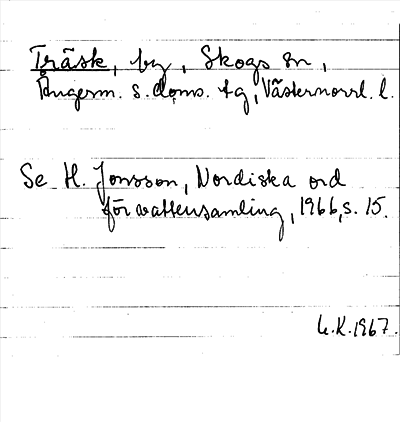 Träsk, by, Skogs sn,
Ångerm. s. doms. tg, Västernorrl. l.
Se H. Jonsson, Nordiska ord
för vattensamling, 1966, s. 15.
L.K. 1967.